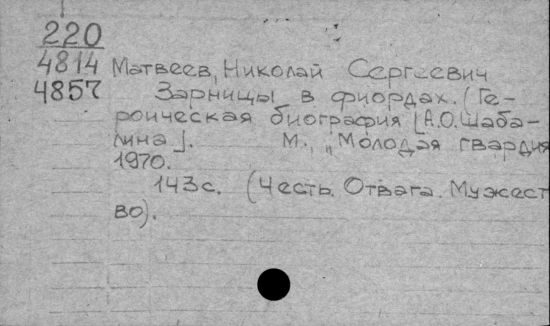 220
4814 Матвеев, Николай Сергеевич
4857 Зарницы в фиордах. (Ге-
роическая биография [А.О. Шаба-
лина]. М., „Молодая гвардия
1970.
143 с. (Честь. Отвага. Мужест
во).